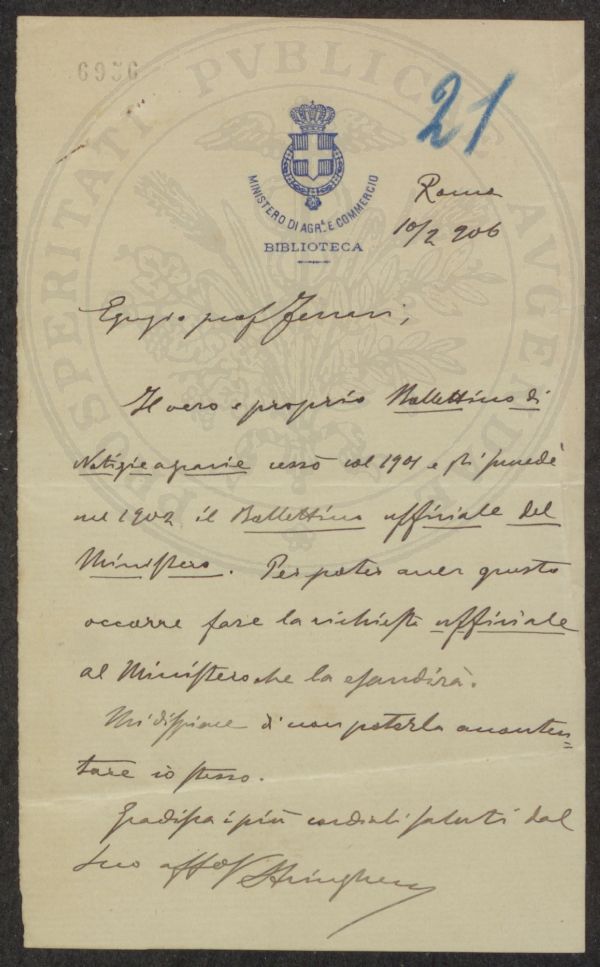 6956
PROSPERITATI PVBLICAE AVGENDAE
21
MINISTERO DI AGR.A E COMMERCIO
BIBLIOTECA
Roma
10/2 906
Egregio prof. Ferrari,
Il vero e proprio Bollettino di
Notizie agrarie cessò col 1901 e gli succedè
nel 1902 il Bollettino ufficiale del
Ministero. Per poter aver questo
occorre fare la richiesta ufficiale
al Ministero che la esaudirà.
Mi dispiace di non poterla acconten=
tare io stesso.
Gradisca i più cordiali saluti dal
Suo aff.o